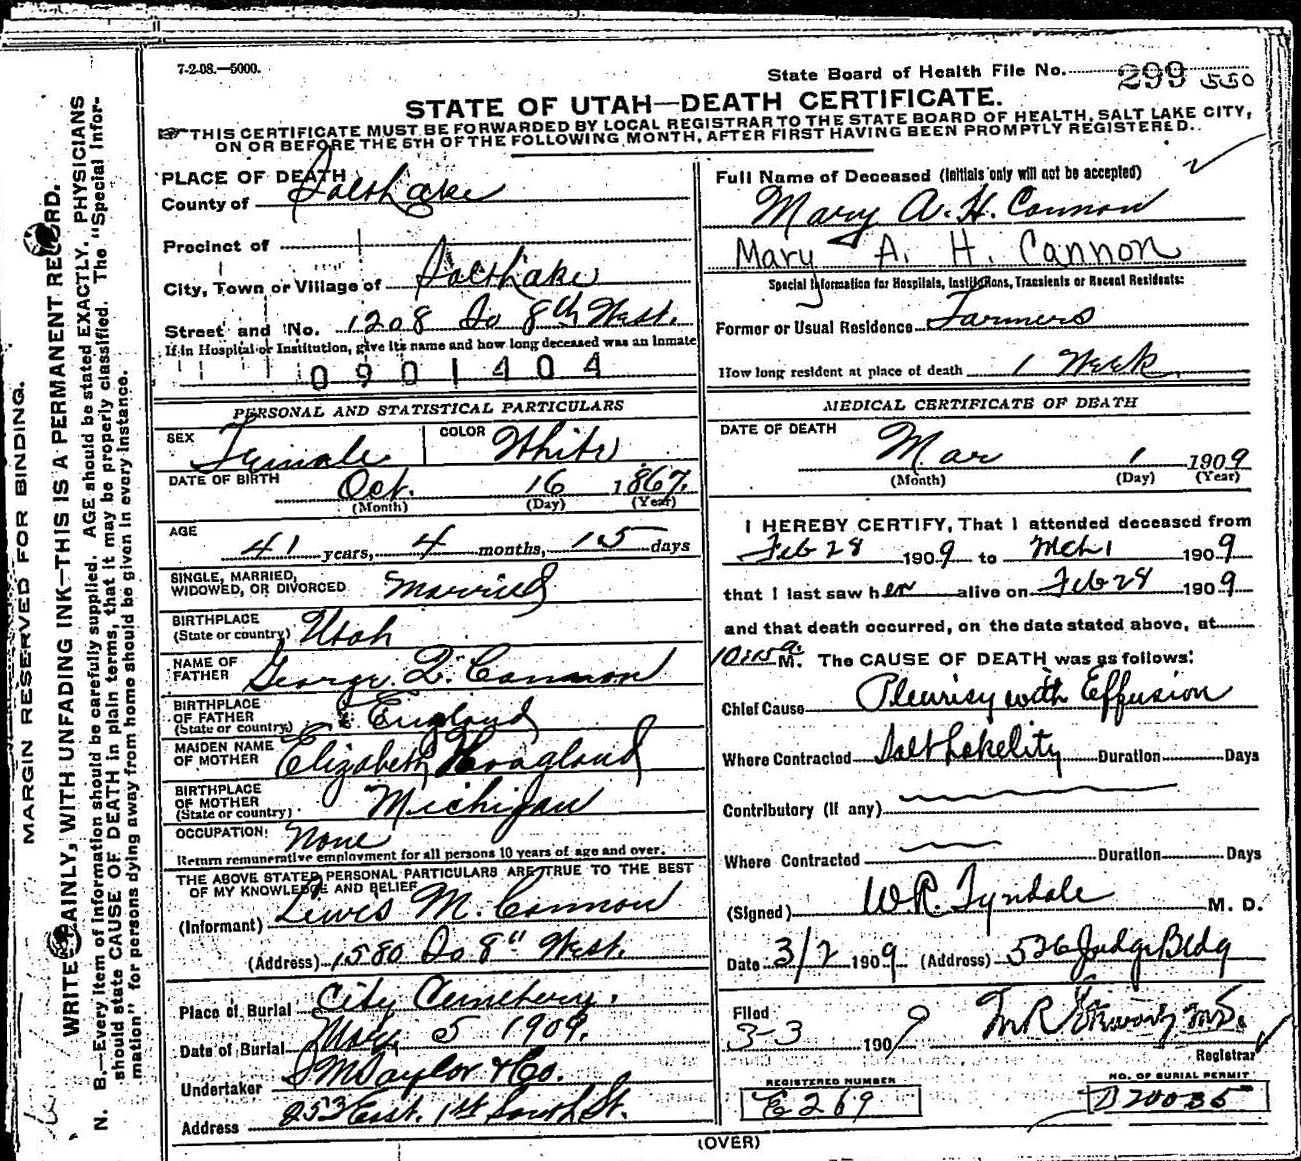 7-2-08.—5000.
State Board of Health File No. 299 550
STATE OF UTAH—DEATH CERTIFICATE.
THIS CERTIFICATE MUST BE FORWARDED BY LOCAL REGISTRAR TO THE STATE BOARD OF HEALTH, SALT LAKE CITY,
ON OR BEFORE THE 5TH OF THE FOLLOWING MONTH, AFTER FIRST HAVING BEEN PROMPTLY REGISTERED.
MARGIN RESERVED FOR BINDING.
WRITE PLAINLY, WITH UNFADING INK—THIS IS A PERMANENT RECORD.
N. B.—Every item of information should be carefully supplied. AGE should be stated EXACTLY. PHYSICIANS
should state CAUSE OF DEATH in plain terms, that it may be properly classified. The "Special Infor-
mation" for persons dying away from home should be given in every instance.
PLACE OF DEATH
County of Salt Lake
Precinct of
City, Town or Village of Salt Lake
Street and No. 1208 So 8th West.
If in Hospital or Institution, give its name and how long deceased was an inmate
0901404
PERSONAL AND STATISTICAL PARTICULARS
SEX Female COLOR White
DATE OF BIRTH Oct. 16 1867.
(Month) (Day) (Year)
AGE 41 years, 4 months, 15 days
SINGLE, MARRIED,
WIDOWED, OR DIVORCED Married
BIRTHPLACE
(State or country) Utah
NAME OF
FATHER George Q. Cannon
BIRTHPLACE
OF FATHER
(State or country) England
MAIDEN NAME
OF MOTHER Elizabeth Hoagland
BIRTHPLACE
OF MOTHER
(State or country) Michigan
OCCUPATION: None
Return remunerative employment for all persons 10 years of age and over.
THE ABOVE STATED PERSONAL PARTICULARS ARE TRUE TO THE BEST
OF MY KNOWLEDGE AND BELIEF
(Informant) Lewis M. Cannon
(Address) 1580 So 8" West.
Place of Burial City Cemetery.
Date of Burial Mar. 5 1909.
Undertaker S M Taylor & Co.
Address 253 East. 1st South St.
Full Name of Deceased (Initials only will not be accepted)
Mary A. H. Cannon
Mary A. H. Cannon
Special Information for Hospitals, Institutions, Transients or Recent Residents:
Former or Usual Residence Farmers
How long resident at place of death 1 Week.
MEDICAL CERTIFICATE OF DEATH
DATE OF DEATH
Mar 1 1909
(Month) (Day) (Year)
I HEREBY CERTIFY, That I attended deceased from
Feb 28 1909 to Mch 1 1909
that I last saw her alive on Feb 28 1909
and that death occurred, on the date stated above, at
10:15 a. M. The CAUSE OF DEATH was as follows:
Chief Cause Pleurisy with Effusion
Where Contracted Salt Lake City Duration Days
Contributory (if any)
Where Contracted Duration Days
(Signed) W.R. Tyndale M. D.
Date 3/2 1909 (Address) 526 Judge Bldg
Filed
3-3 1909 M.D.
Registrar
REGISTERED NUMBER
E 269
NO. OF BURIAL PERMIT
D 20035
(OVER)